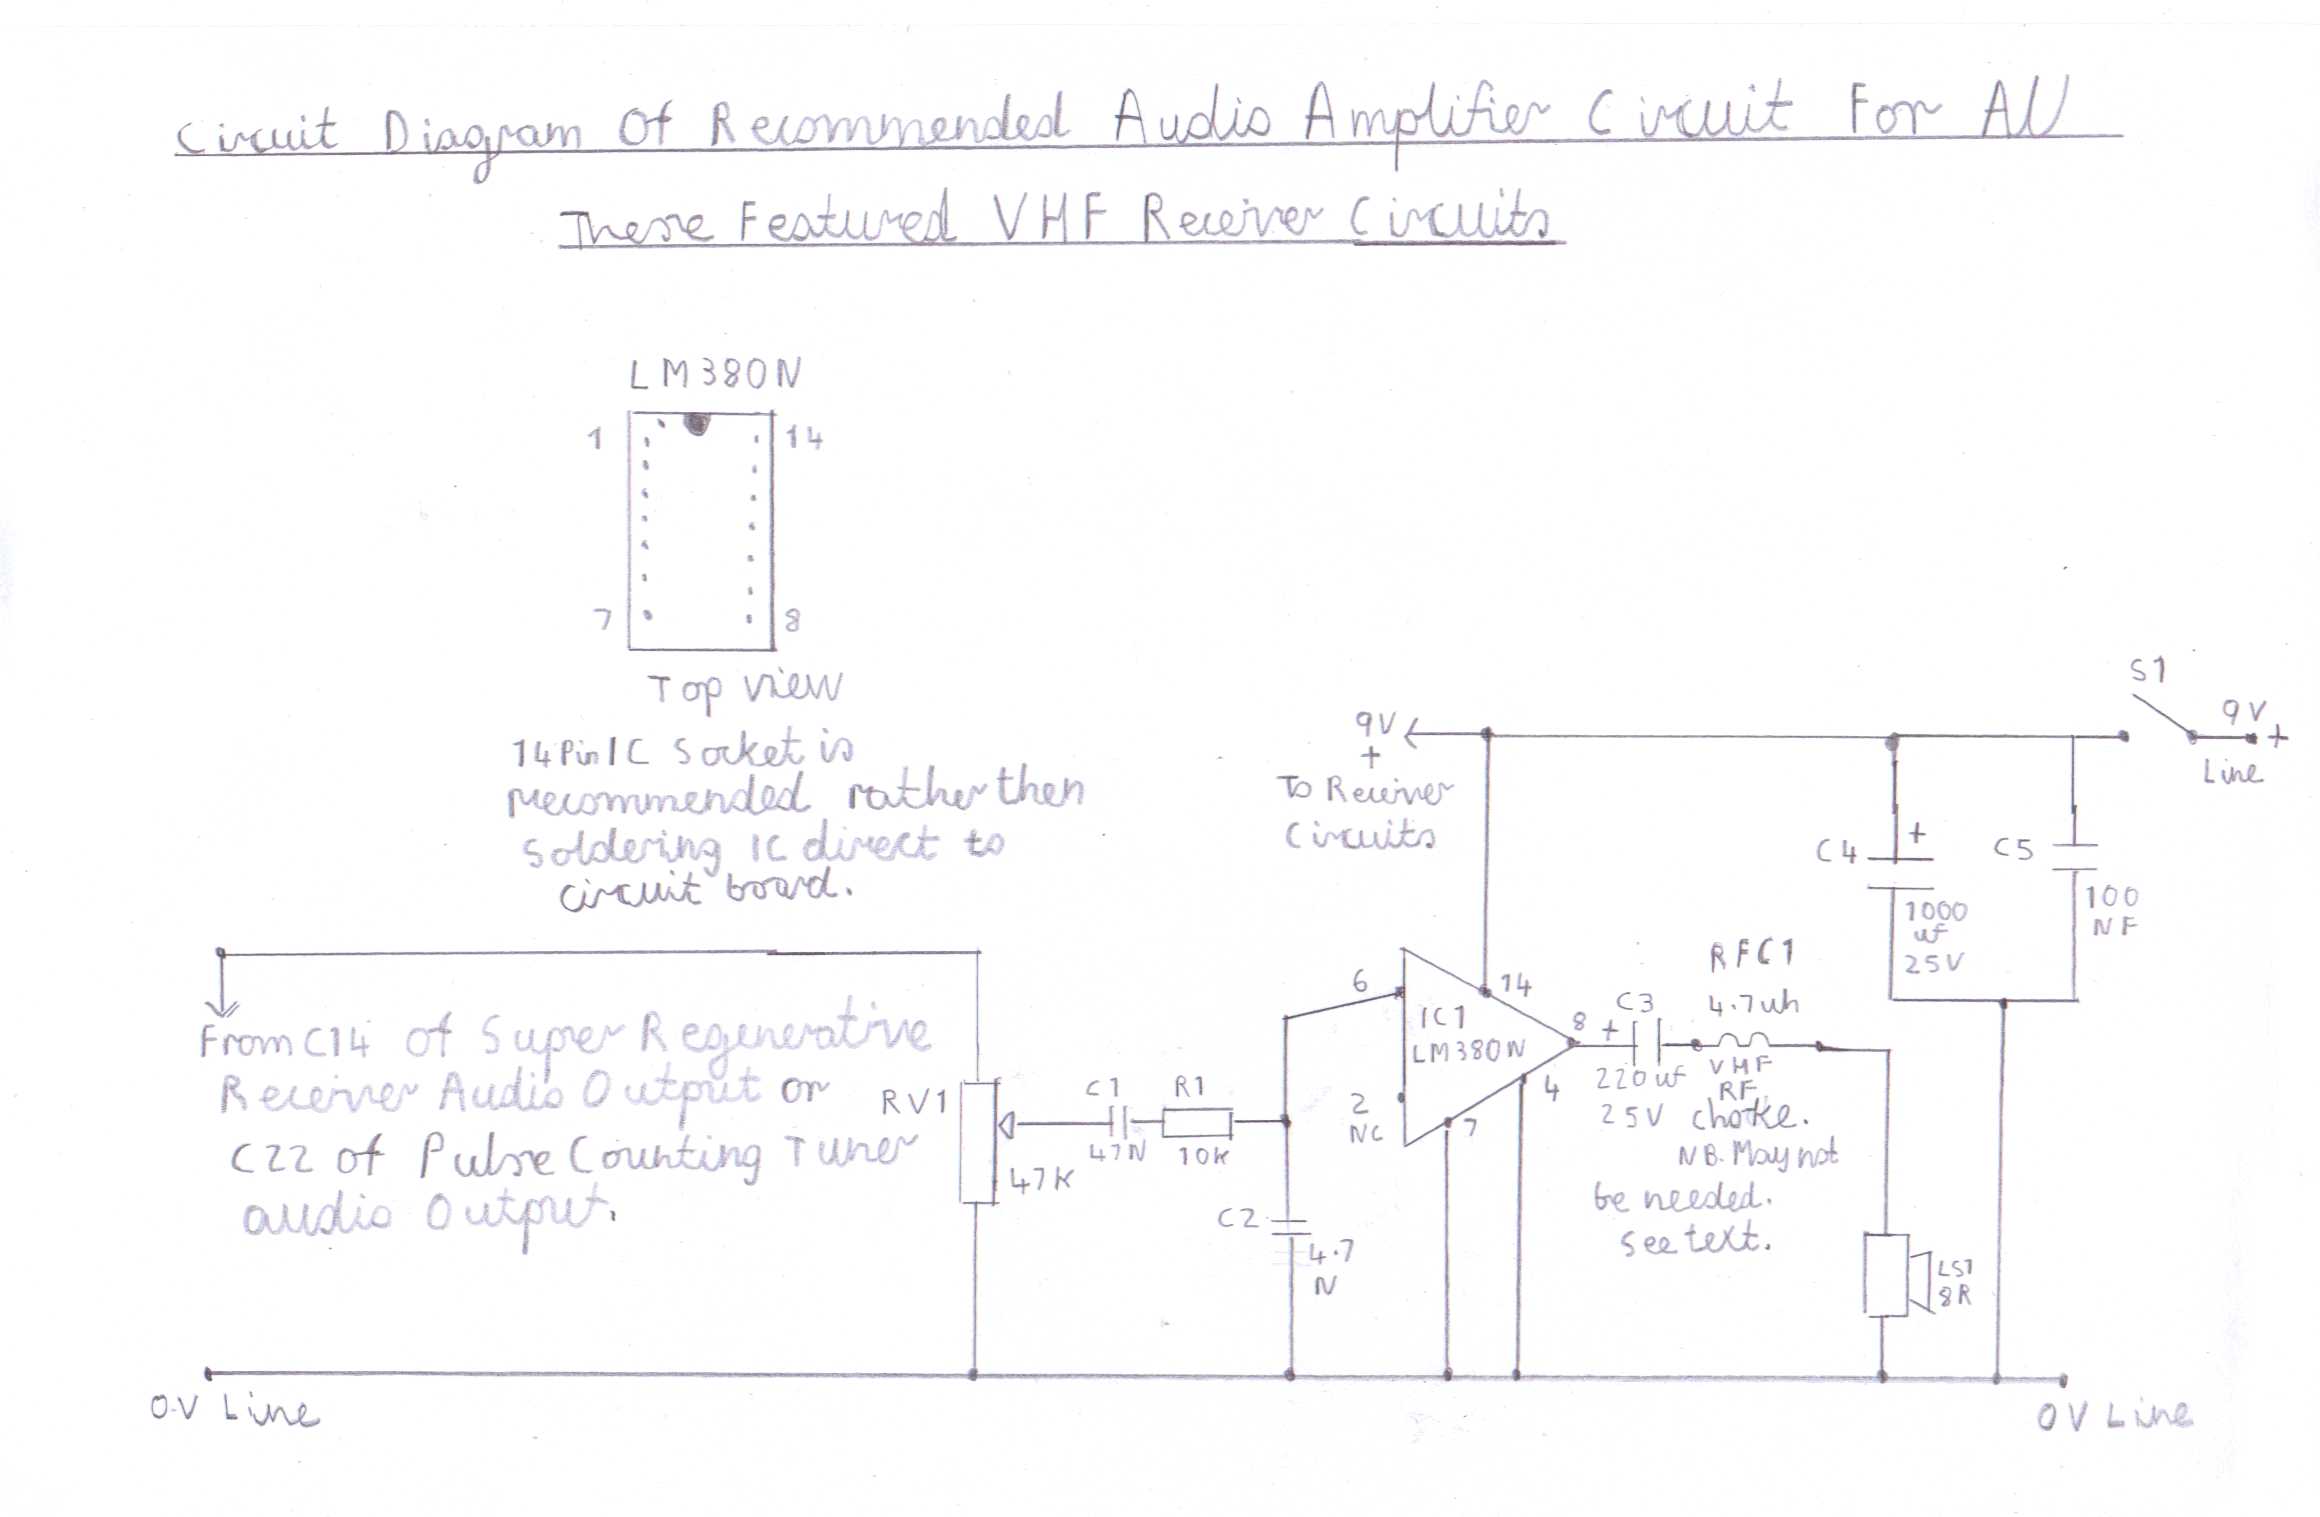 Circuit Diagram Of Recommended Audio Amplifier Circuit For All
These Featured VHF Receiver Circuits
LM380N
1
14
7
8
Top view
14 Pin IC Socket is
recommended rather then
soldering IC direct to
circuit board.
S1
9V
+
Line
9V
+
To Receiver
Circuits
C4
+
1000
uf
25V
C5
100
NF
From C14 of Super Regenerative
Receiver Audio Output or
C22 of Pulse Counting Tuner
audio Output.
RV1
47K
C1
47N
R1
10K
C2
4.7
N
6
2
NC
IC1
LM380N
14
8
4
7
+
C3
220uf
25V
RFC1
4.7uh
VHF
RF
choke.
NB. May not
be needed.
see text.
LS1
8R
0V Line
0V Line